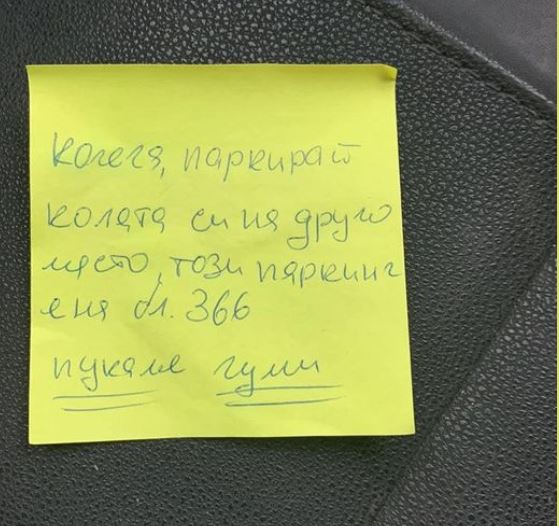 колега, паркирай
колата си на друго
място, този паркинг
е на бл. 366
пукаме гуми